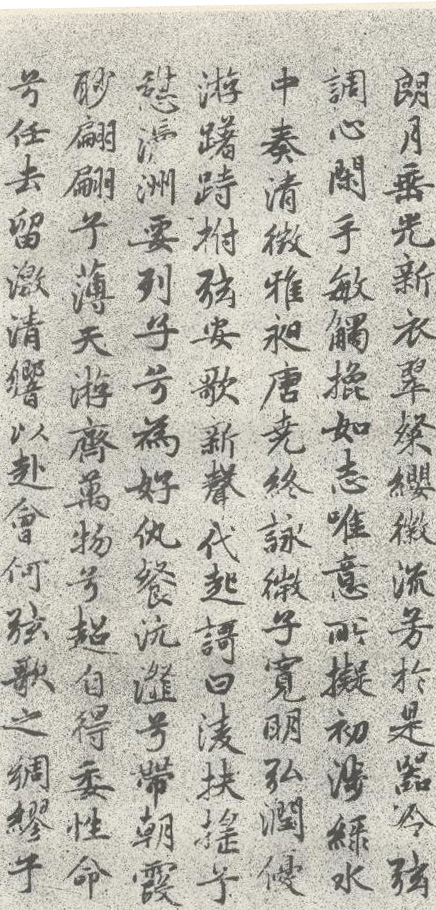 朗月垂光新衣翠粲纓徽流芳於是器冷弦
調心閑手敏觸㧓如志唯意所擬初涉綠水
中奏清徵雅昶唐堯終詠微子寬明弘潤優
游躇跱拊弦安歌新聲代起謌曰淩扶搖兮
憩瀛洲要列子兮為好仇餐沆瀣兮帶朝霞
眇翩翩兮薄天游齊萬物兮超自得委性命
兮任去留激清響以赴會何弦歌之綢繆于